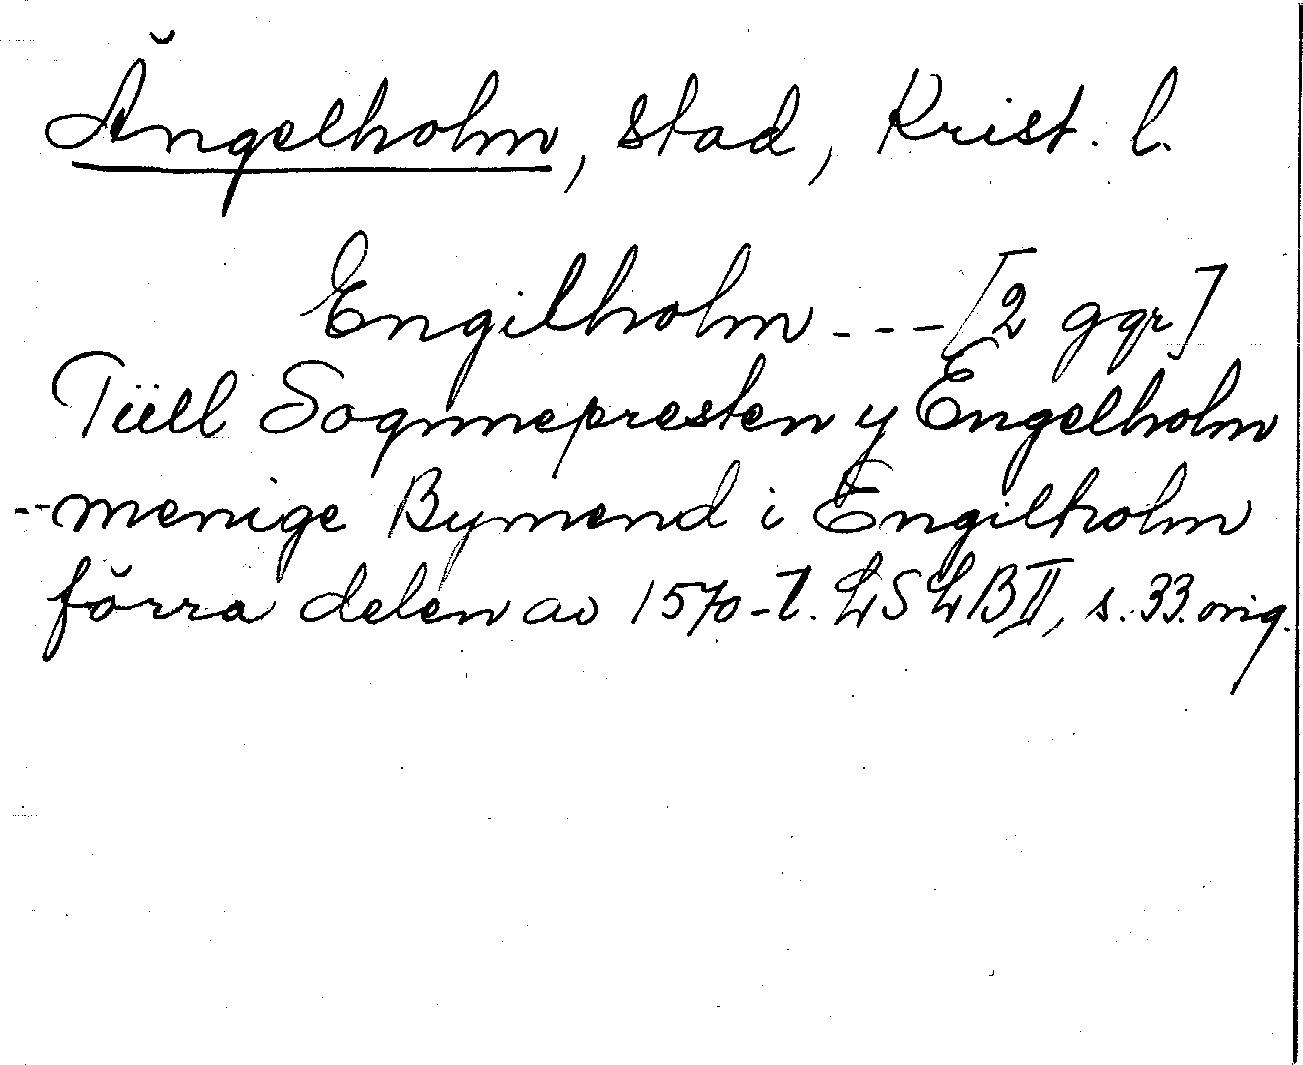 Ängelholm, stad, Krist. l.
Engilholm --- [2 ggr]
Tiill Sognnepresten y Engelholm
-- menige Bymend i Engilholm
förra delen av 1570-t. LSLB II, s. 33. orig.